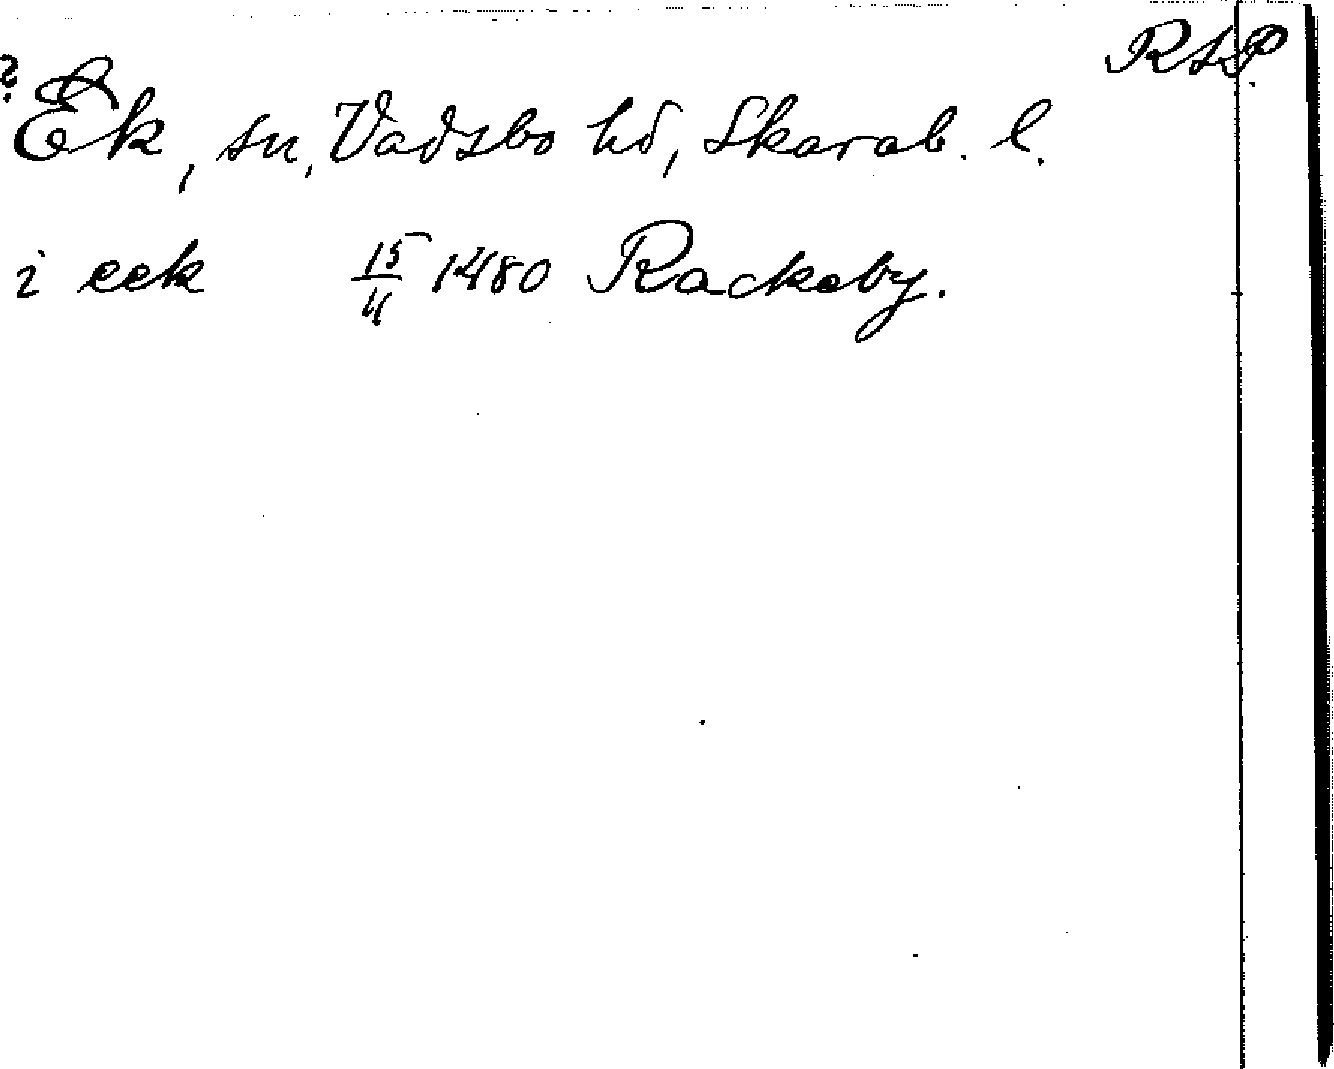 RAP.
? Ek, sn, Vadsbo hd, Skarab. l.
i eek 15/4 1480 Rackeby.